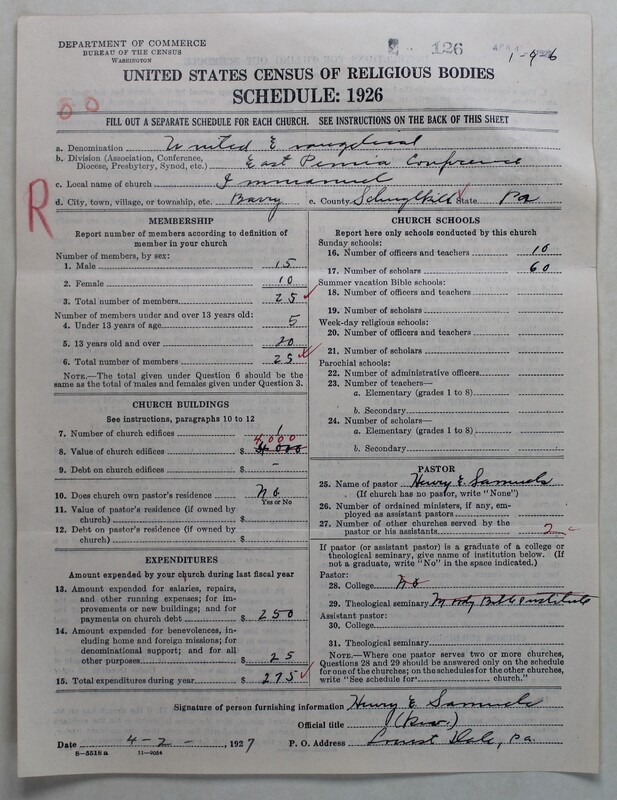 DEPARTMENT OF COMMERCE
BUREAU OF THE CENSUS
WASHINGTON
126
1-9-6
UNITED STATES CENSUS OF RELIGIOUS BODIES
SCHEDULE: 1926
FILL OUT A SEPARATE SCHEDULE FOR EACH CHURCH. SEE INSTRUCTIONS ON THE BACK OF THIS SHEET
a. Denomination United Evangelical
b. Division (Association, Conference, Diocese, Presbytery, Synod, etc.) East Penna Conference
c. Local name of church Immanuel
R
d. City, town, village, or township, etc. Barry e. County Schuylkill State Pa
MEMBERSHIP
Report number of members according to definition of
member in your church
Number of members, by sex:
1. Male 15
2. Female 10
3. Total number of members 25
Number of members under and over 13 years old:
4. Under 13 years of age 5
5. 13 years old and over 20
6. Total number of members 25
NOTE.—The total given under Question 6 should be
same as the total of males and females given under Question 3.
CHURCH BUILDINGS
See instructions, paragraphs 10 to 12
7. Number of church edifices 1
4000
8. Value of church edifices $
9. Debt on church edifices $ -
10. Does church own pastor's residence No
Yes or No
11. Value of pastor's residence (if owned by
church) $
12. Debt on pastor's residence (if owned by
church) $
EXPENDITURES
Amount expended by your church during last fiscal year
13. Amount expended for salaries, repairs,
and other running expenses; for im-
provements or new buildings; and for
payments on church debt $ 250
14. Amount expended for benevolences, in-
cluding home and foreign missions; for
denominational support; and for all
other purposes $ 25
15. Total expenditures during year $ 275
CHURCH SCHOOLS
Report here only schools conducted by this church
Sunday schools:
16. Number of officers and teachers 10
17. Number of scholars 60
Summer vacation Bible schools:
18. Number of officers and teachers
19. Number of scholars
Week-day religious schools:
20. Number of officers and teachers
21. Number of scholars
Parochial schools:
22. Number of administrative officers
23. Number of teachers—
a. Elementary (grades 1 to 8)
b. Secondary
24. Number of scholars—
a. Elementary (grades 1 to 8)
b. Secondary
PASTOR
25. Name of pastor Henry E. Samuels
(If church has no pastor, write "None")
26. Number of ordained ministers, if any, em-
ployed as assistant pastors
27. Number of other churches served by the
pastor or his assistants 2
If pastor (or assistant pastor) is a graduate of a college or
theological seminary, give name of institution below. (If
not a graduate, write "No" in the space indicated.)
Pastor:
28. College No
29. Theological seminary Moody Bible Institute
Assistant pastor:
30. College
31. Theological seminary
NOTE.—Where one pastor serves two or more churches,
Questions 28 and 29 should be answered only on the schedule
for one of the churches; on the schedules for the other churches,
write "See schedule for church."
Signature of person furnishing information Henry E. Samuels
Official title (Rev.)
Date 4-2-, 1927 P. O. Address Dale, Pa.
8-5518a 11-9054